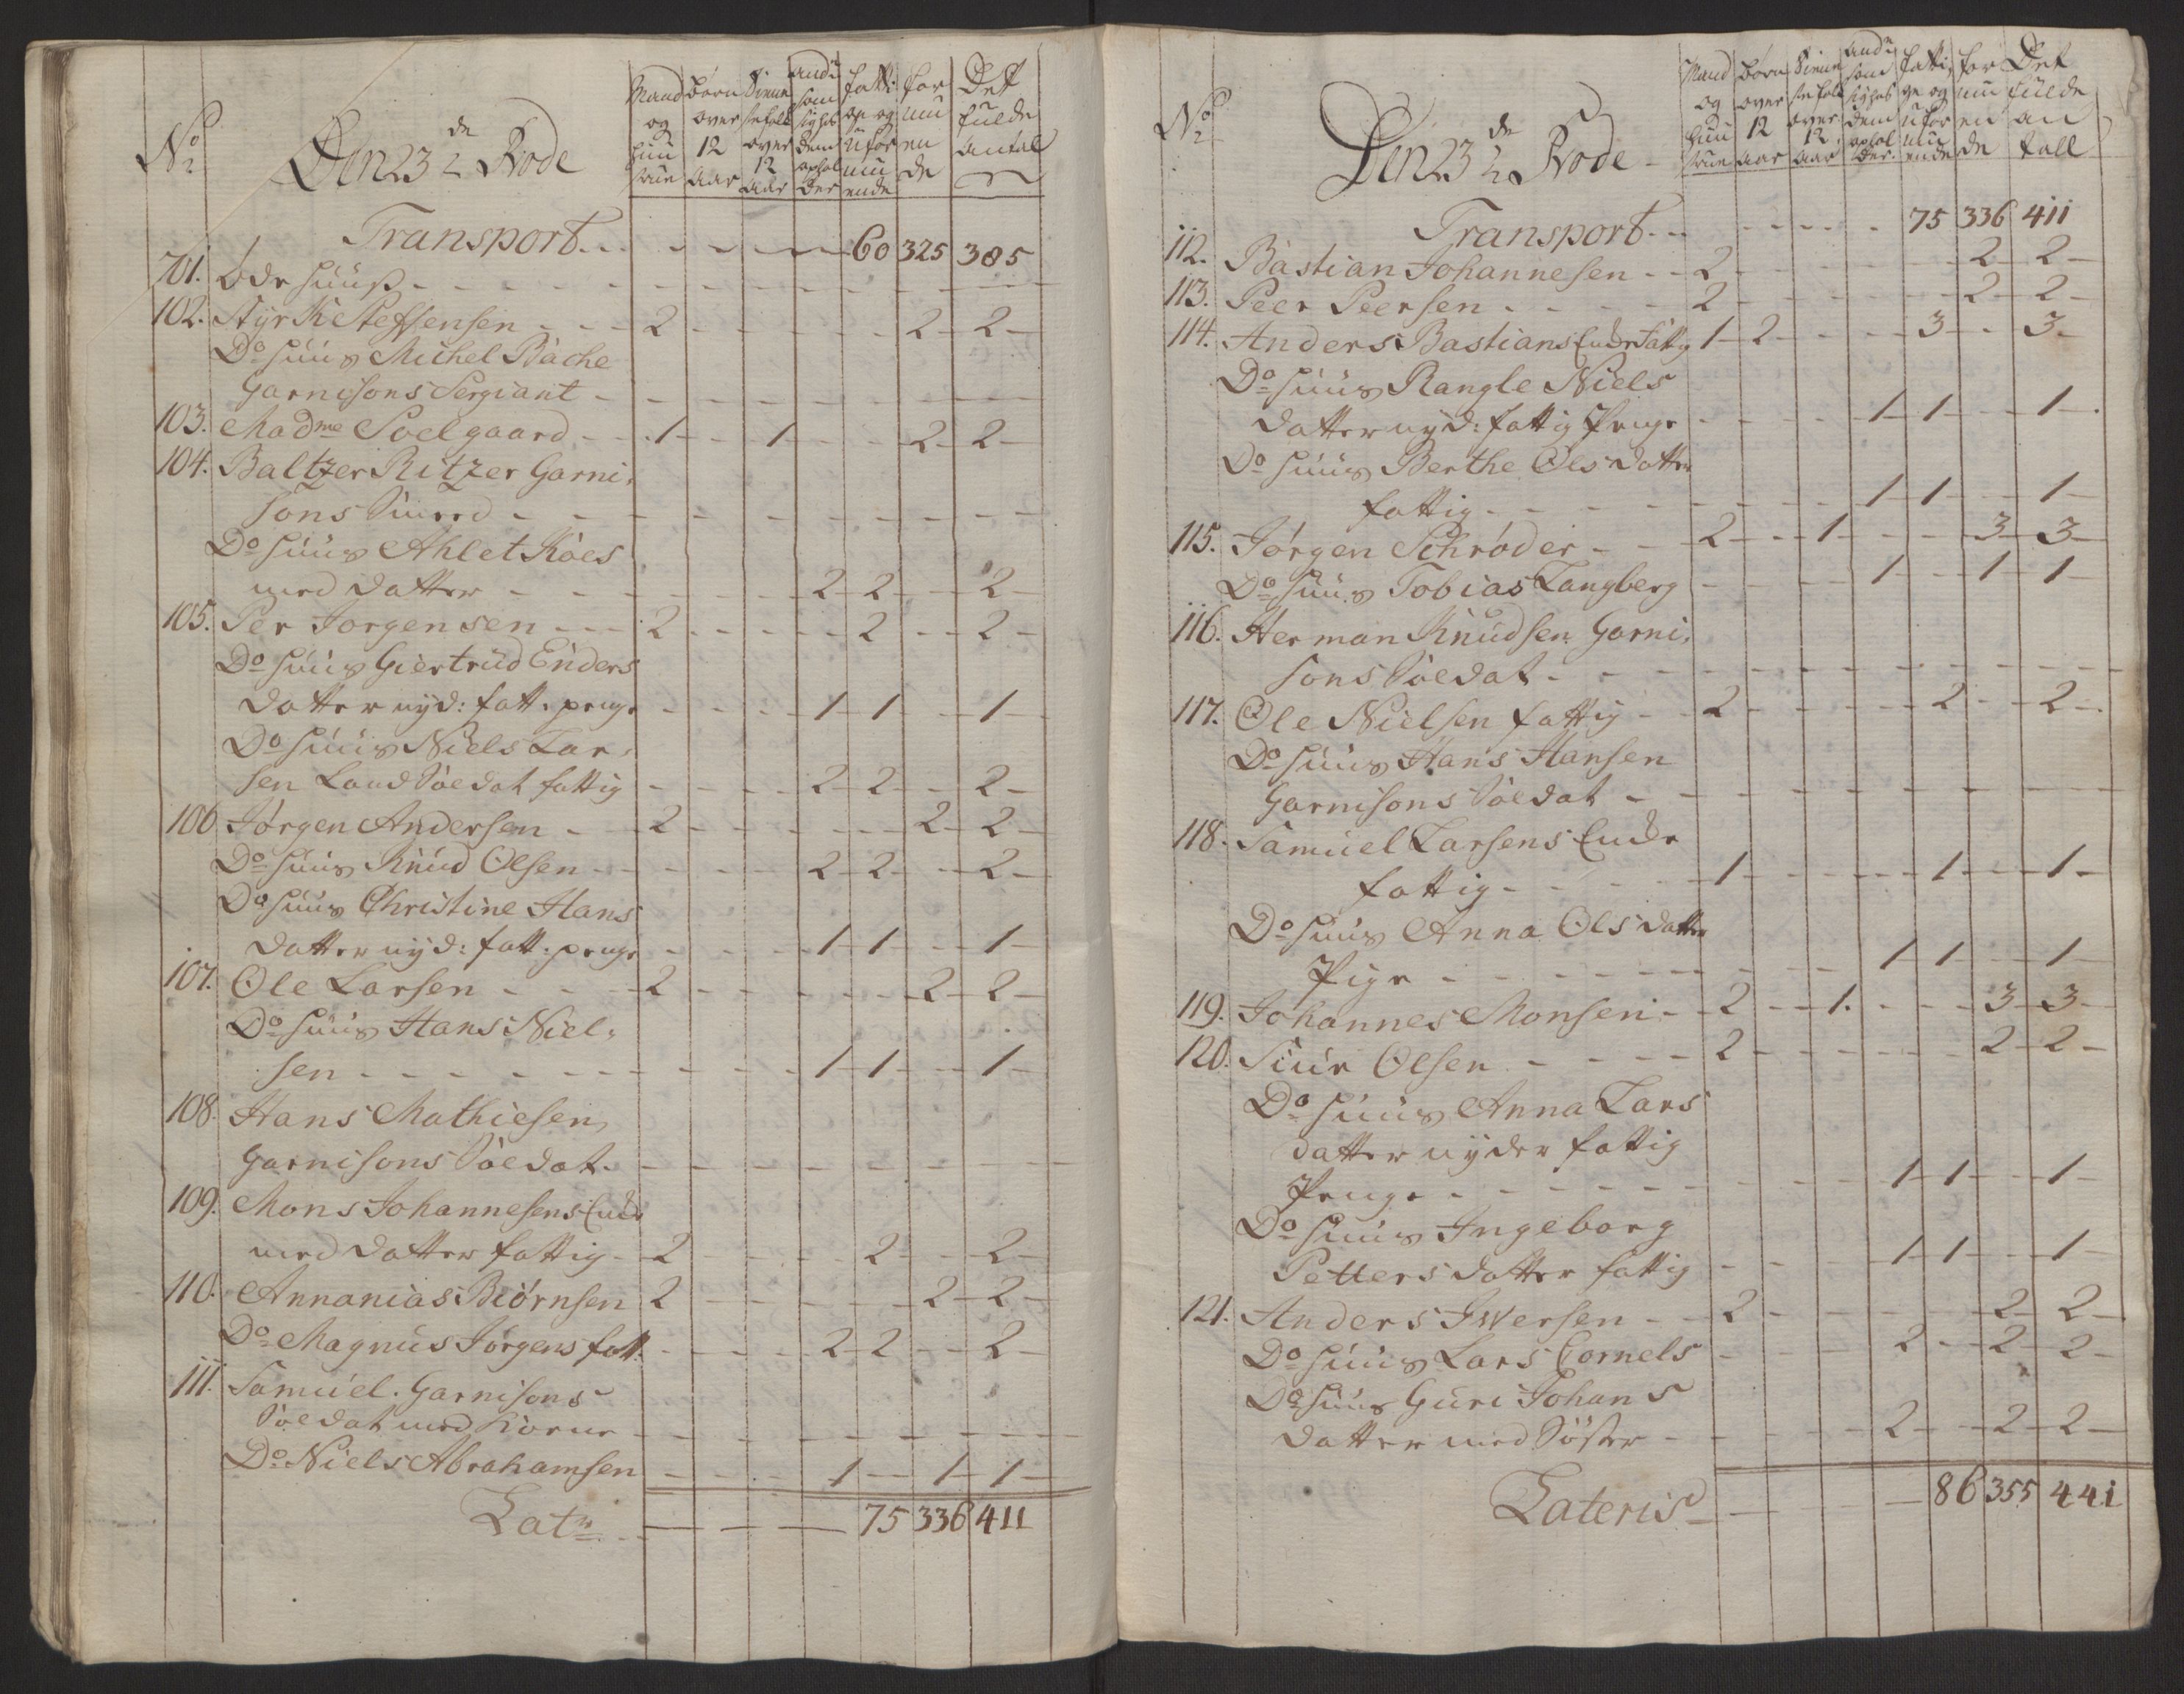 No
Den 23 de Rode
Mand og Huustrue
Børn over 12 aar
Tienistefolk over 12 aar
andre som sig hos dem opholder
fattige og uformuende
formuende
Det fulde antal
Transport . . - - - - 60 325 385
701. Øde Huus - - - - - -
102. Styrk Steffensen - - - 2 - - - - - 2 - 2 -
Do Huus Michel Bache
Garnisons Sergiant - - - - - -
103. Madme Soelgaard - - 1 - - 1 - - - 2 - 2 -
104. Baltzer Ritzer Garni,
sons - - - - - -
Do Huus Ahlet Roes
med datter - - - - - 2 - 2 - - 2 -
105. Per Jorgensen - - - 2 - - - - 2 - - 2 -
Do Huus Giertrud Enders
datter nyd: fatt. penge - - - - 1 - 1 - - 1 -
Do Huus Niels Lar,
sen Land Soldat fattig - - - - 2 - 2 - - 2 -
106 Jørgen Andersen - - 2 - - - - - 2 - 2 -
Do Huus Knud Olsen - - - - - 2 - 2 - - 2 -
Do Huus Christine Hans
datter nyd: fatt: penge - - - - 1 - 1 - - 1 -
107. Ole Larsen - - - 2 - - - - - 2 - 2 -
Do Huus Hans Niel,
sen - - - - - - - 1 - 1 - - 1 -
108. Hans Mathiesen
Garnisons Soldat - - - - - -
109. Mons Johannesens Enke
med datter fattig - 2 - - - - 2 - - 2 -
110. Annanias Biørnsen 2 - - - - - 2 - 2 -
Do Magnus Jørgens fatt. - - - - 2 - 2 - - 2 -
111. Samuel. Garnisons
Soldat med Kone - - - - - -
Do Niels Abrahamsen - - - - 1 - - 1 - 1 -
Latr - - - - 75 336 411
No
Den 23 de Rode -
Mand og Huustrue
Børn over 12 aar
Tienistefolk over 12 aar
andre som sig hos dem opholder
fattige og uformuende
formuende
Det fulde antall
Transport . . - - - - - 75 336 411
112. Bastian Johannesen - - 2 - - - - - 2 - 2 -
113. Peer Peersen - - - - 2 - - - - - 2 - 2 -
114. Anders Bastians Enke fattig 1 - 2 - - - 3 - - 3 -
Do Huus Rangle Niels
datter nyd: fattig Penge - - - - 1 - 1 - - 1 -
Do Huus Berthe Ols datter
fattig - - - - - - 1 - 1 - - 1 -
115. Jørgen Schrøder - - - 2 - - 1 - - - 3 - 3 -
Do Huus Tobias Langberg - - - - 1 - - 1 - 1 -
116. Herman Knudsen Garni,
sons Soldat - - - - - -
117. Ole Nielsen fattig - - 2 - - - - 2 - - 2 -
Do Huus Hans Hansen
Garnisons Soldat - - - - - -
118. Samuel Larsens Enke
fattig - - - - - 1 - - - - 1 - - 1 -
Do Huus Anna Ols datter
Pige - - - - - - - 1 - 1 - - 1 -
119. Johannes Monsen - - 2 - - 1 - - - 3 - 3 -
120. Siur Olsen - - - - 2 - - - - - 2 - 2 -
Do Huus Anna Lars
datter nyder fattig
Penge - - - - - - - 1 - 1 - - 1 -
Do Huus Ingeborg
Petters datter fattig - - - - 1 - 1 - - 1 -
121. Anders Iversen - - 2 - - - - - 2 - 2 -
Do Huus Lars Cornels - - - - 2 - - 2 - 2 -
Do Huus Guri Johans
datter med Søster - - - - - 2 - - 2 - 2 -
Lateris - - - - 86 355 441